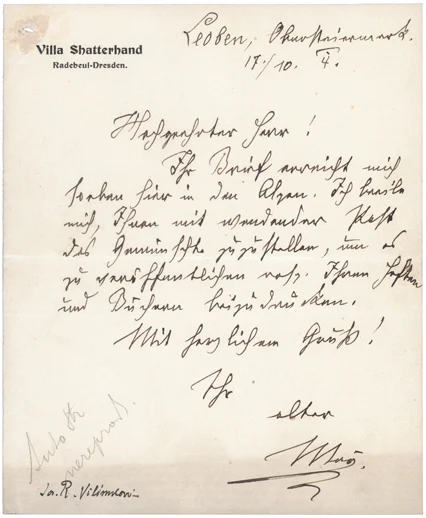 Villa Shatterhand
Radebeul-Dresden.
Leoben, Obersteiermark.
17./10.
Hochgeehrter Herr!
Ihr Brief erreicht mich
soeben hier in den Alpen. Ich beeile
mich, Ihnen mit wendender Post
das Gewünschte zuzustellen, um es
zu veröffentlichen resp. Ihren Heften
und Büchern beizudrucken.
Mit herzlichem Gruß!
Ihr
alter
May.
Jos. R. Vilímkovi